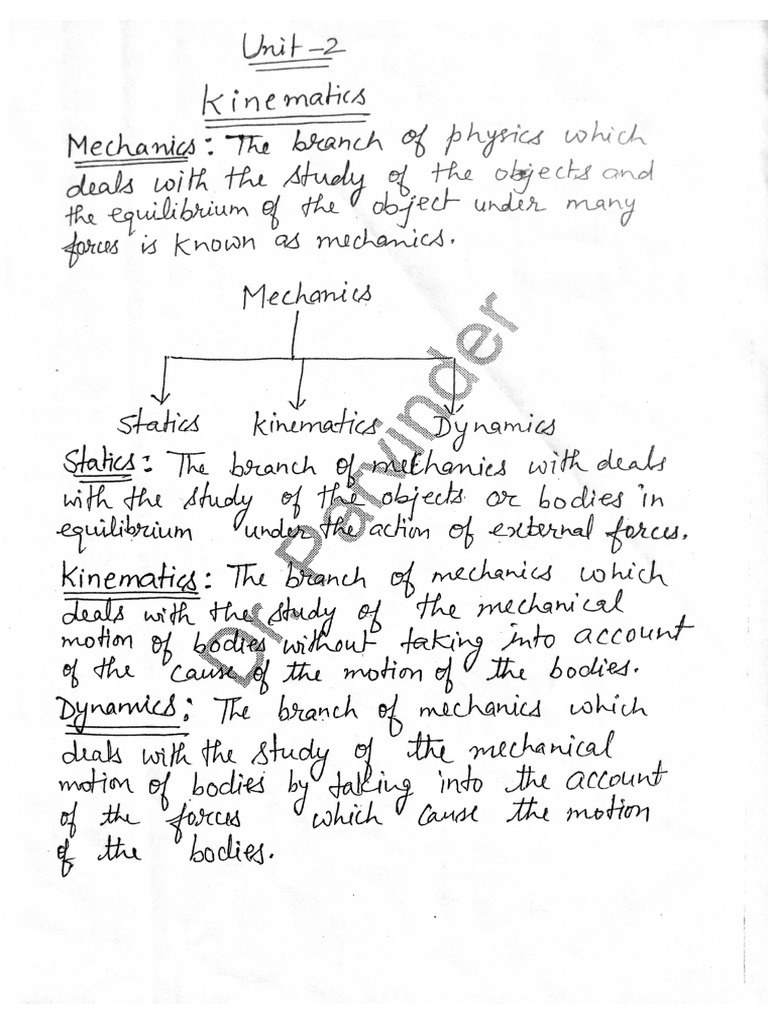 Unit-2
Kinematics
Mechanics: The branch of physics which
deals with the study of the objects and
the equilibrium of the object under many
forces is known as mechanics.
Mechanics
Statics Kinematics Dynamics
Statics: The branch of mechanics with deals
with the study of the objects or bodies in
equilibrium under the action of external forces.
Kinematics: The branch of mechanics which
deals with the study of the mechanical
motion of bodies without taking into account
of the cause of the motion of the bodies.
Dynamics: The branch of mechanics which
deals with the study of the mechanical
motion of bodies by taking into the account
of the forces which cause the motion
of the bodies.
Dr Parvinder